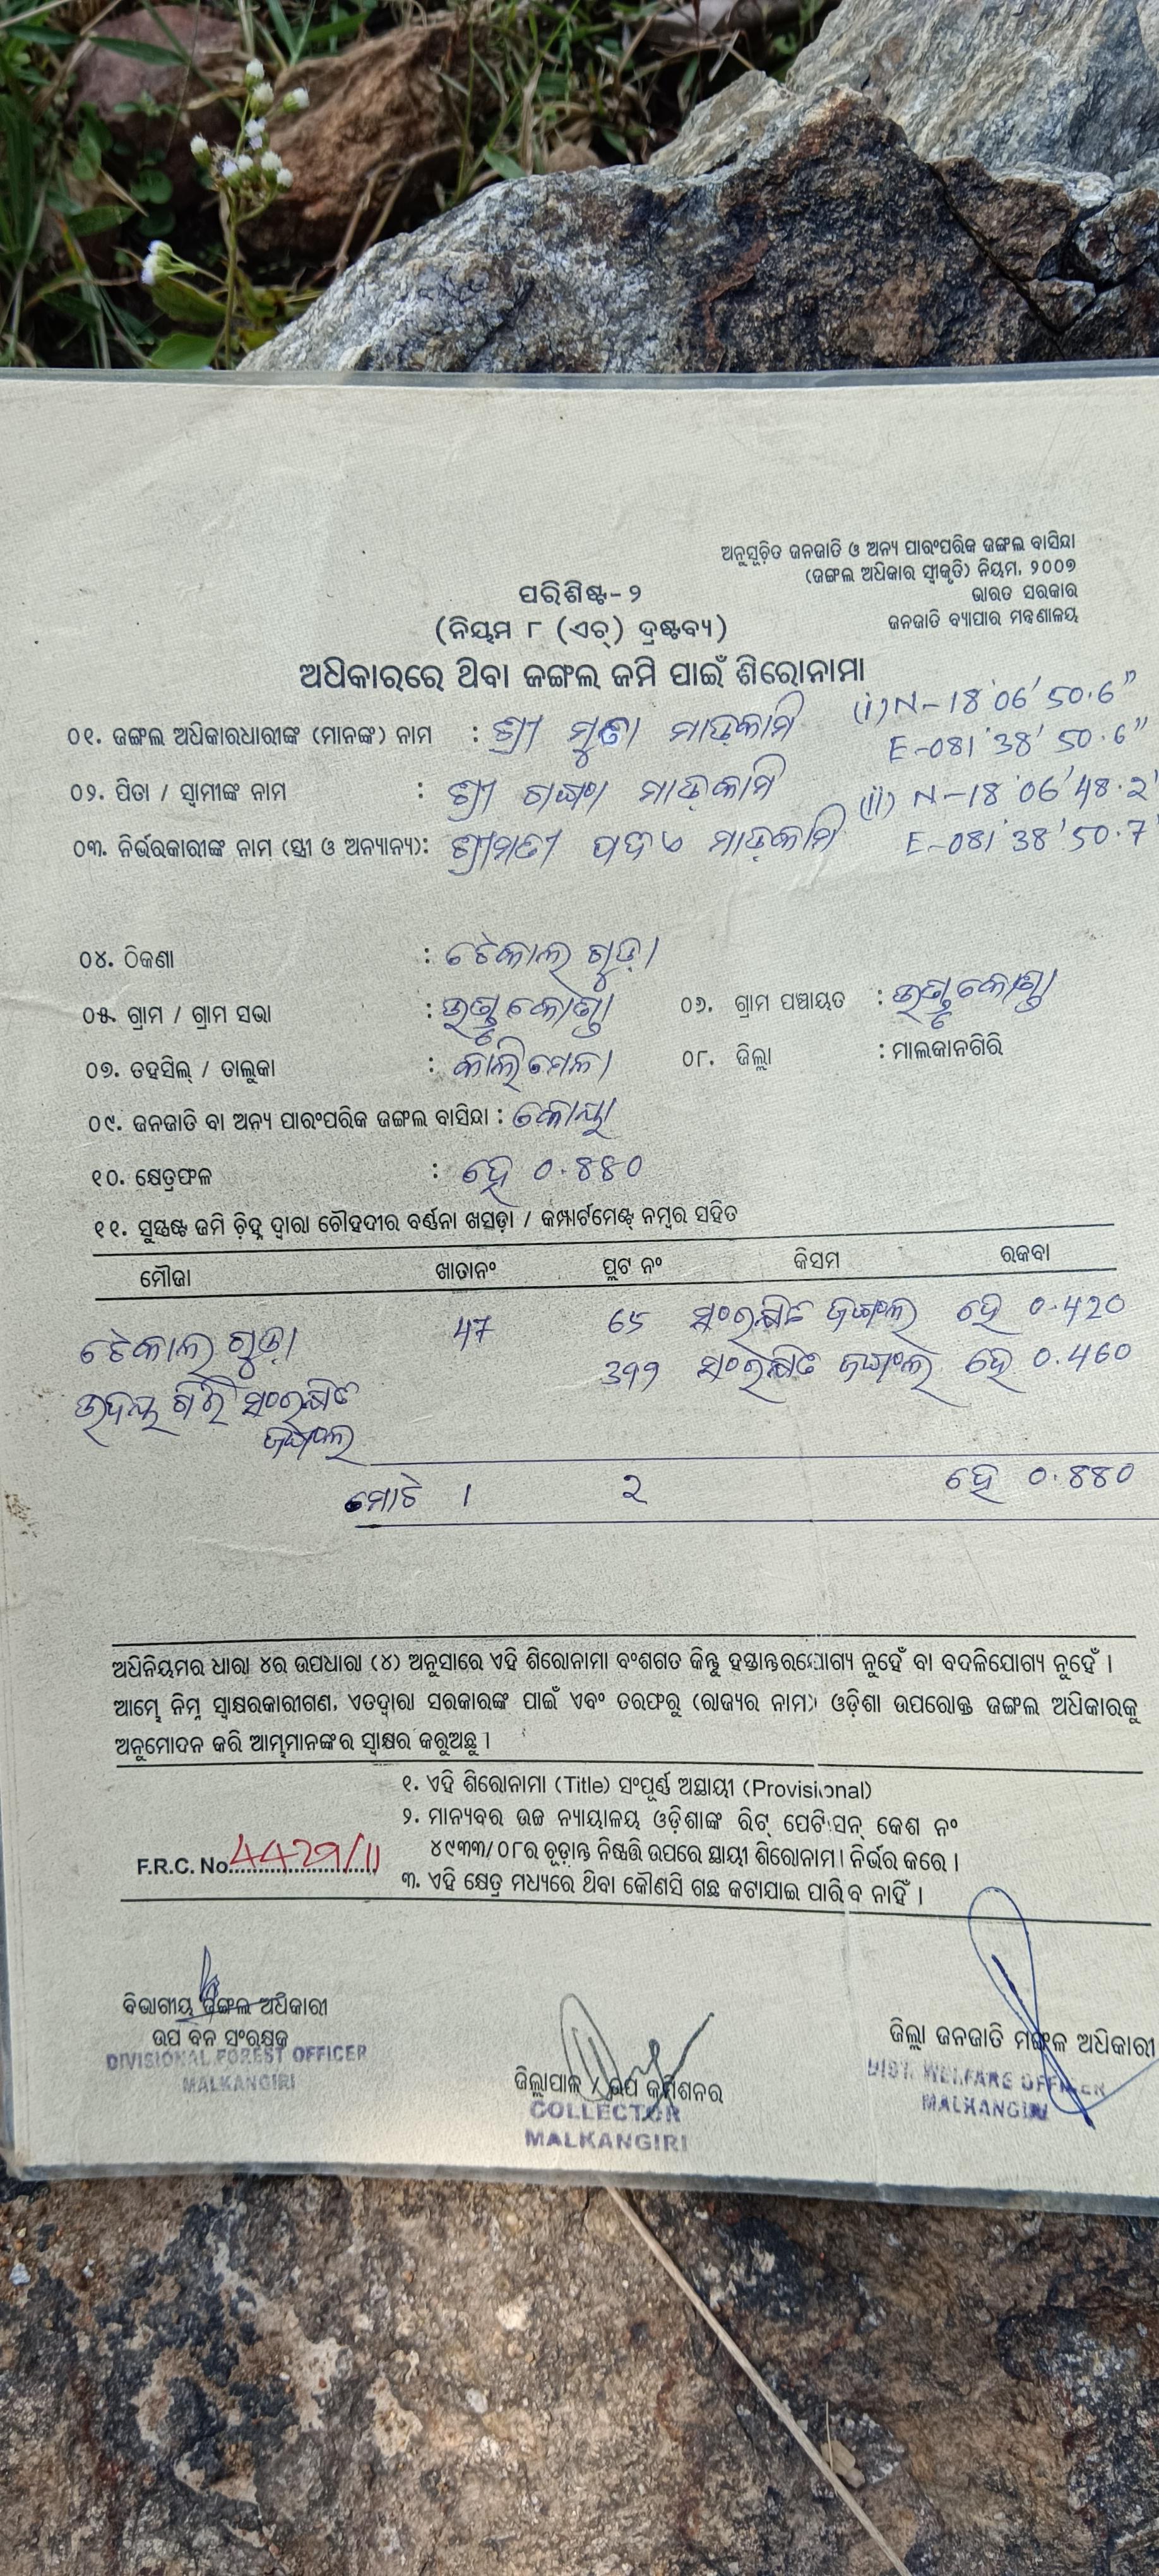 ଅନୁସୂଚିତ ଜନଜାତି ଓ ଅନ୍ୟ ପାରଂପରିକ ଜଙ୍ଗଲ ବାସିନ୍ଦା
(ଜଙ୍ଗଲ ଅଧିକାର ସ୍ଵୀକୃତି) ନିୟମ, ୨୦୦୭
ଭାରତ ସରକାର
ଜନଜାତି ବ୍ୟାପାର ମନ୍ତ୍ରଣାଳୟ
ପରିଶିଷ୍ଟ-୨
(ନିୟମ ୮ (ଏଚ୍) ଦ୍ରଷ୍ଟବ୍ୟ)
ଅଧିକାରରେ ଥିବା ଜଙ୍ଗଲ ଜମି ପାଇଁ ଶିରୋନାମା
୦୧. ଜଙ୍ଗଲ ଅଧିକାରଧାରୀଙ୍କ (ମାନଙ୍କ) ନାମ : ଶ୍ରୀ ମାଡ଼କାମି (i) N-18°06'50.6"
E-081°38'50.6"
୦୨. ପିତା / ସ୍ଵାମୀଙ୍କ ନାମ : ଶ୍ରୀ ଗଙ୍ଗା ମାଡ଼କାମି (ii) N-18°06'48.2"
୦୩. ନିର୍ଭରକାରୀଙ୍କ ନାମ (ସ୍ତ୍ରୀ ଓ ଅନ୍ୟାନ୍ୟ): ଶ୍ରୀମତୀ ମାଡ଼କାମି E-081°38'50.7"
୦୪. ଠିକଣା : ଟେକାଲ ଗୁଡ଼ା
୦୫. ଗ୍ରାମ / ଗ୍ରାମ ସଭା : ୦୬. ଗ୍ରାମ ପଞ୍ଚାୟତ :
୦୭. ତହସିଲ୍ / ତାଲୁକା : କାଲିମେଳା ୦୮. ଜିଲ୍ଲା : ମାଲକାନଗିରି
୦୯. ଜନଜାତି ବା ଅନ୍ୟ ପାରଂପରିକ ଜଙ୍ଗଲ ବାସିନ୍ଦା : କୋୟା
୧୦. କ୍ଷେତ୍ରଫଳ : ହେ ୦.୫୫୦
୧୧. ସୁସ୍ପଷ୍ଟ ଜମି ଚିହ୍ନ ଦ୍ଵାରା ଚୌହଦୀର ବର୍ଣ୍ଣନା ଖସଡ଼ା / କମ୍ପାର୍ଟମେଣ୍ଟ୍ ନମ୍ବର ସହିତ
ମୌଜା ଖାତାନଂ ପ୍ଲଟ ନଂ କିସମ ରକବା
ଟେକାଲ ଗୁଡ଼ା 47 65 ସଂରକ୍ଷିତ ଜଙ୍ଗଲ ହେ 0.420
ଉଦୟ ଗିରି ସଂରକ୍ଷିତ ସଂରକ୍ଷିତ ଜଙ୍ଗଲ ହେ 0.460
ଜଙ୍ଗଲ
ମୋଟ 1 2 ହେ 0.880
ଅଧିନିୟମର ଧାରା ୪ର ଉପଧାରା (୪) ଅନୁସାରେ ଏହି ଶିରୋନାମା ବଂଶଗତ କିନ୍ତୁ ହସ୍ତାନ୍ତରଯୋଗ୍ୟ ନୁହେଁ ବା ବଦଳିଯୋଗ୍ୟ ନୁହେଁ ।
ଆମ୍ଭେ ନିମ୍ନ ସ୍ଵାକ୍ଷରକାରୀଗଣ, ଏତଦ୍ଵାରା ସରକାରଙ୍କ ପାଇଁ ଏବଂ ତରଫରୁ (ରାଜ୍ୟର ନାମ) ଓଡ଼ିଶା ଉପରୋକ୍ତ ଜଙ୍ଗଲ ଅଧିକାରକୁ
ଅନୁମୋଦନ କରି ଆମ୍ଭମାନଙ୍କର ସ୍ଵାକ୍ଷର କରୁଅଛୁ ।
୧. ଏହି ଶିରୋନାମା (Title) ସଂପୂର୍ଣ୍ଣ ଅସ୍ଥାୟୀ (Provisional)
୨. ମାନ୍ୟବର ଉଚ୍ଚ ନ୍ୟାୟାଳୟ ଓଡ଼ିଶାଙ୍କ ରିଟ୍ ପେଟିସନ୍ କେଶ ନଂ
୪୯୩୩/୦୮ର ଚୂଡ଼ାନ୍ତ ନିଷ୍ପତ୍ତି ଉପରେ ସ୍ଥାୟୀ ଶିରୋନାମା ନିର୍ଭର କରେ ।
F.R.C. No. 4429/11
୩. ଏହି କ୍ଷେତ୍ର ମଧ୍ୟରେ ଥିବା କୌଣସି ଗଛ କଟାଯାଇ ପାରିବ ନାହିଁ ।
ବିଭାଗୀୟ ଜଙ୍ଗଲ ଅଧିକାରୀ
ଉପ ବନ ସଂରକ୍ଷକ
DIVISIONAL FOREST OFFICER
MALKANGIRI
ଜିଲ୍ଲାପାଳ / ଉପ କମିଶନର
COLLECTOR
MALKANGIRI
ଜିଲ୍ଲା ଜନଜାତି ମଙ୍ଗଳ ଅଧିକାରୀ
DIST. WELFARE OFFICER
MALKANGIRI